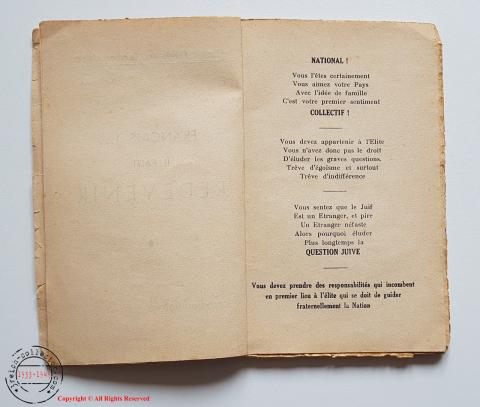 NATIONAL !
Vous l'êtes certainement
Vous aimez votre Pays
Avec l'idée de famille
C'est votre premier sentiment
COLLECTIF !
Vous devez appartenir à l'Elite
Vous n'avez donc pas le droit
D'éluder les graves questions.
Trêve d'égoïsme et surtout
Trêve d'indifférence
Vous sentez que le Juif
Est un Etranger, et pire
Un Etranger néfaste
Alors pourquoi éluder
Plus longtemps la
QUESTION JUIVE
Vous devez prendre des responsabilités qui incombent
en premier lieu à l'élite qui se doit de guider
fraternellement la Nation
1933-1945
Copyright © All Rights Reserved